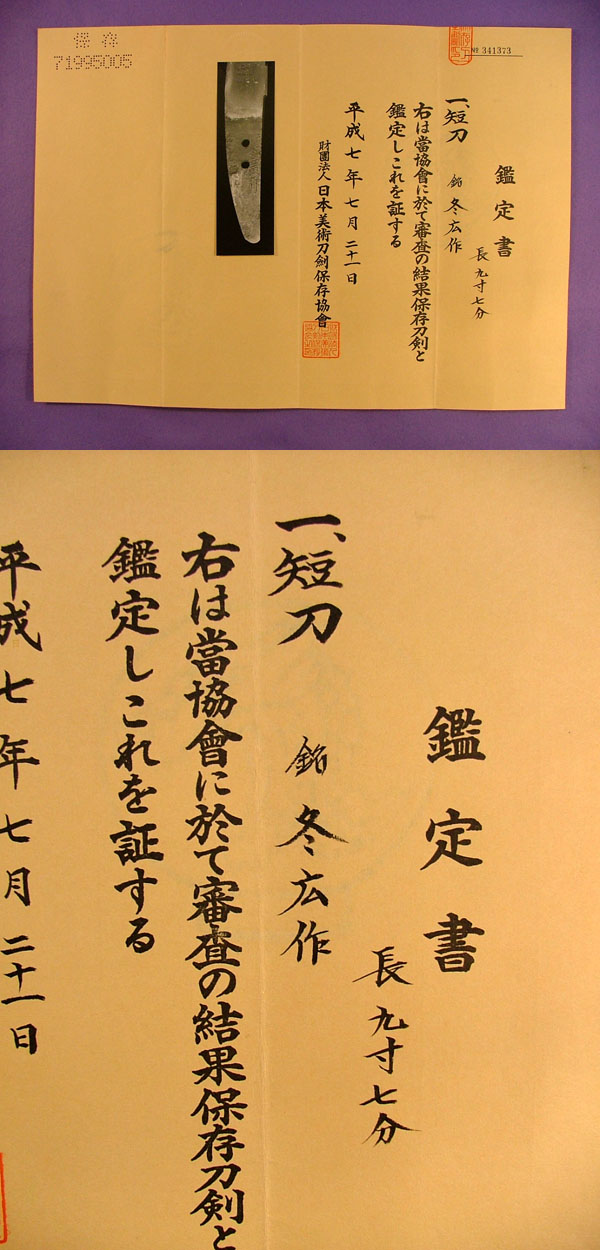 保存
71995005
№ 341373
鑑定書
一、短刀 銘 冬広作
長九寸七分
右は當協會に於て審査の結果保存刀剣と
鑑定しこれを証する
平成七年七月二十一日
財團法人日本美術刀劍保存協會
鑑定書
一、短刀 銘 冬広作
長九寸七分
右は當協會に於て審査の結果保存刀剣と
鑑定しこれを証する
平成七年七月二十一日